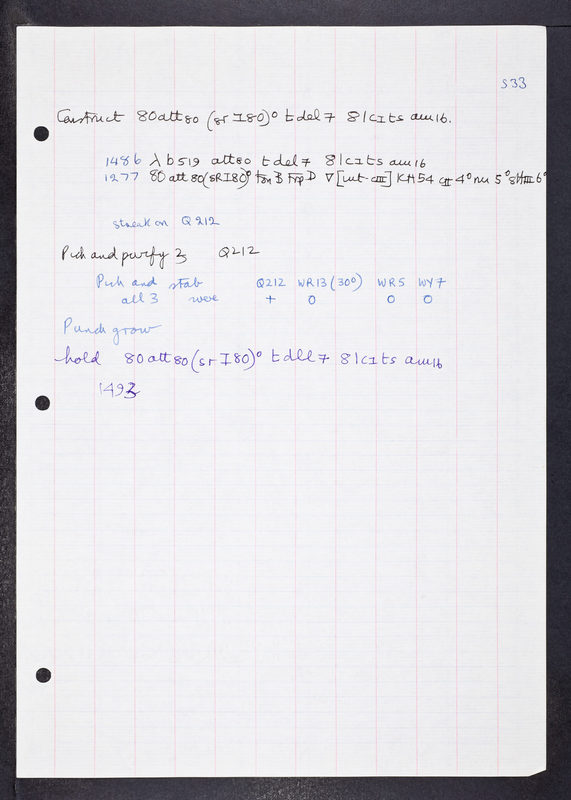 S33
Construct 80att80 (sr I80)° t del 7 81c I ts am16.
1486 λ b519 att80 t del 7 81c I ts am16
1277 80 att 80 (SR I80)° D ∇ [int-cIII] KH54 4° nu 5° 6°
streak on Q212
Pick and purify 3 Q212
Pick and stab Q212 WR13 (30°) WR5 WY7
all 3 were + 0 0 0
Punch grow
hold 80att80 (sr I80)° t del 7 81c I ts am16
1493